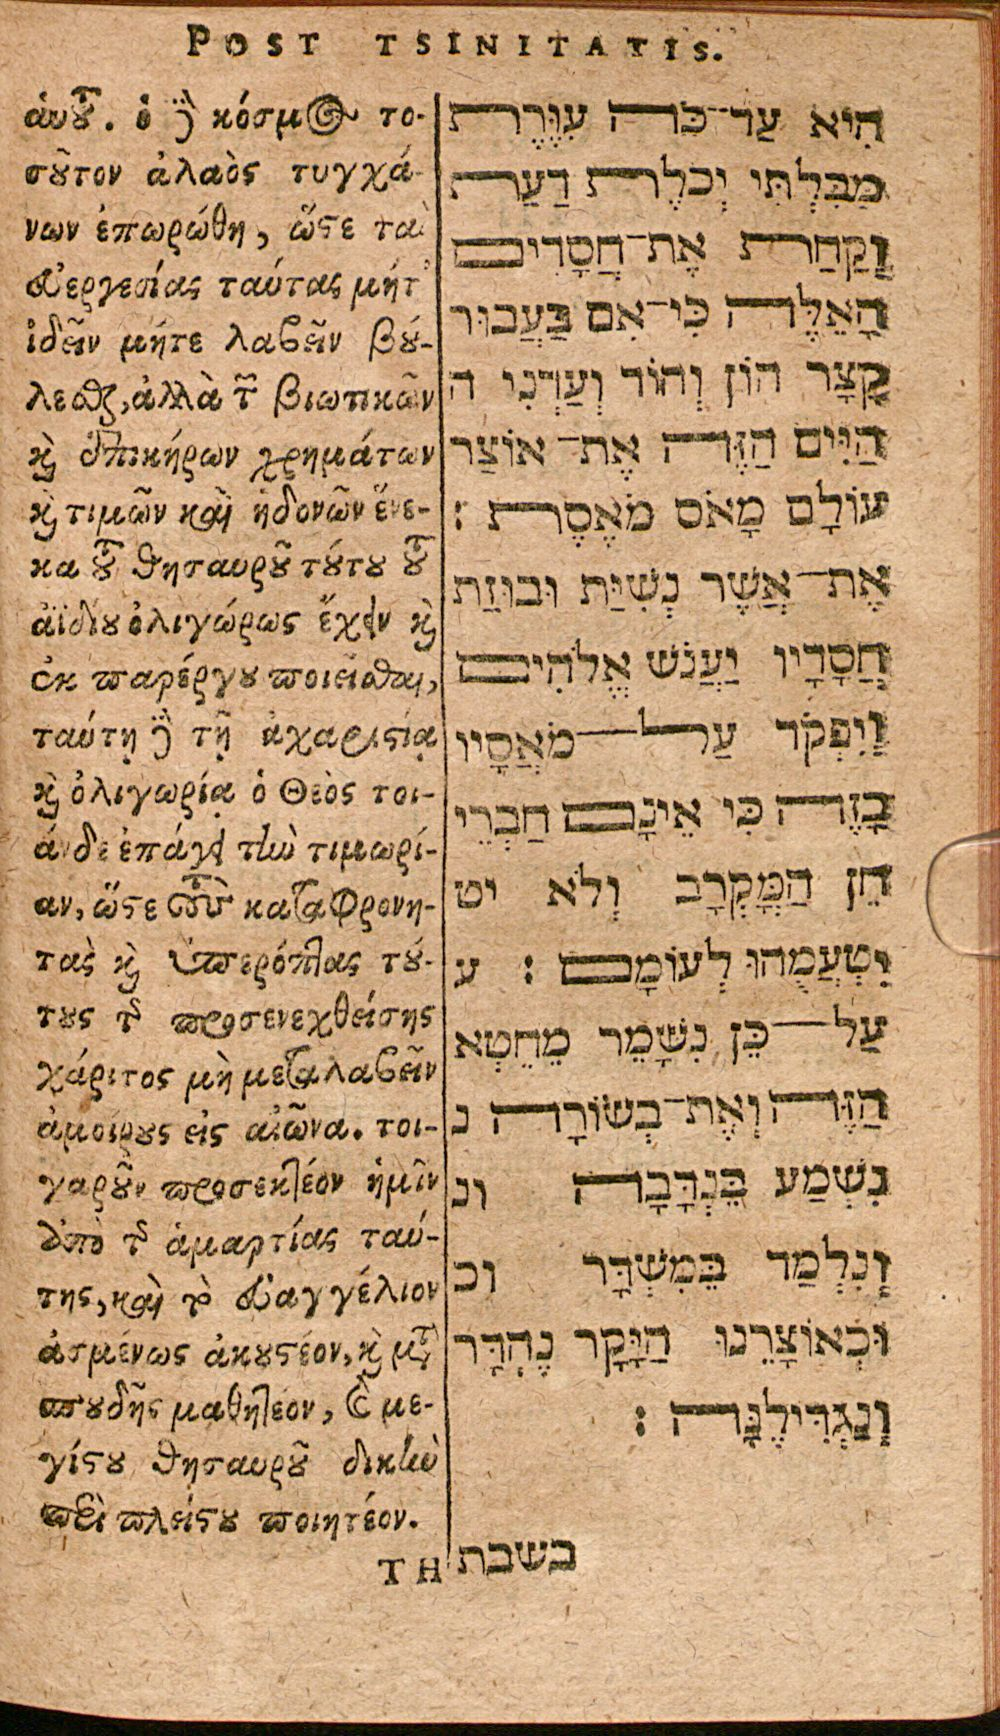 POST TSINITATIS.
ἁυτοῦ. ὁ δὲ κόσμος το-
σοῦτον ἀλαὸς τυγχά-
νων ἐπωρώθη, ὥστε τὰς
εὐεργεσίας ταύτας μήτ'
ἰδεῖν μήτε λαβεῖν βού-
λεσθαι, ἀλλὰ τῶν βιωτικῶν
καὶ ἐπικήρων χρημάτων
καὶ τιμῶν καὶ ἡδονῶν ἕνε-
κα τοῦ θησαυροῦ τούτου τοῦ
ἀϊδίου ὀλιγώρως ἔχειν καὶ
ἐκ παρέργου ποιεῖσθαι,
ταύτῃ δὲ τῇ ἀχαριστίᾳ
καὶ ὀλιγωρίᾳ ὁ Θεὸς τοι-
άνδε ἐπάγει τὴν τιμωρί-
αν, ὥστε τοὺς καταφρονη-
τὰς καὶ ὑπερόπτας τού-
τους τῆς προσενεχθείσης
χάριτος μὴ μεταλαβεῖν
ἀμοίρους εἰς αἰῶνα. τοι-
γαροῦν προσεκτέον ἡμῖν
ἀπὸ τῆς ἁμαρτίας ταύ-
της, καὶ τὸ εὐαγγέλιον
ἀσμένως ἀκουστέον, καὶ μετὰ
σπουδῆς μαθητέον, καὶ με-
γίστου θησαυροῦ δίκην
περὶ πλείστου ποιητέον.
TH
הִיא עַד־כֹּה עִוֶּרֶת
מִבִּלְתִּי יְכֹלֶת דַּעַת
וָקַחַת אֶת־חֲסָדִים
הָאֵלֶּה כִּי־אִם בַּעֲבוּר
קָצָר הוֹן וְהוֹד וְעַדְנֵי ה
הַיִּים הַזֶּה אֶת־אוֹצַר
עוֹלָם מָאֹס מֹאֶסֶת :
אֶת־אֲשֶׁר נְשִׁיַּת וּבוּזַת
חֲסָדָיו יַעֲנֹשׁ אֱלֹהִים
וְיִפְקֹד עַל־מֹאֲסָיו
בָּזֶה כִּי אֵינָם חַבְרֵי
חֵן הַמָּקְרָב וְלֹא יט
יִטְעֲמֻהוּ לְעוֹמָם : ע
עַל־כֵּן נִשָּׁמֵר מֵחֵטְא
הַזֶּה וְאֶת־בְּשׂוֹרָה נ
נִשְׁמַע בִּנְדָּבָה ונ
וְנִלְמַד בְּמִשְׁדָּר וכ
וּכְאוֹצָרֵנוּ הַיָּקָר נֶהְדָּר
וְנַגְדִּילֶנָּה :
בשבת